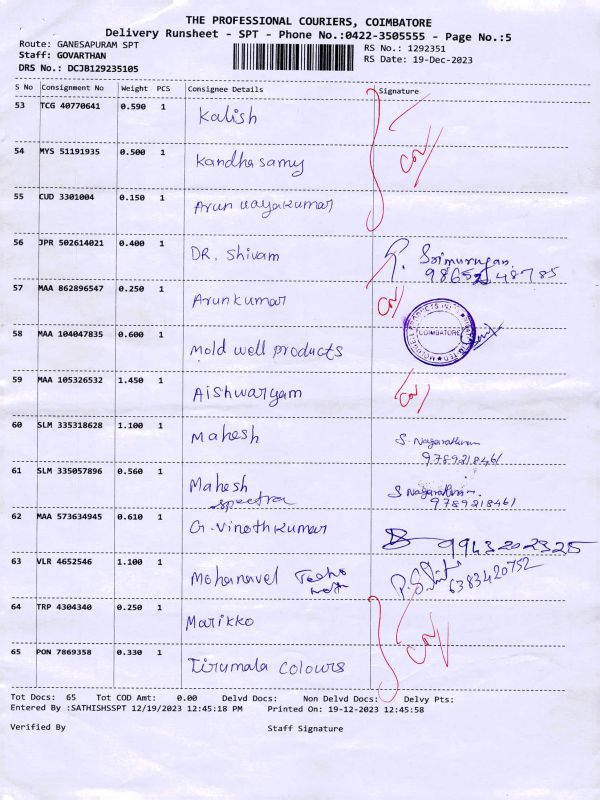 THE PROFESSIONAL COURIERS, COIMBATORE
Delivery Runsheet - SPT - Phone No.:0422-3505555 - Page No.:5
Route: GANESAPURAM SPT
RS No.: 1292351
Staff: GOVARTHAN
RS Date: 19-Dec-2023
DRS No.: DCJB129235105
S No Consignment No Weight PCS Consignee Details Signature
53 TCG 40770641 0.590 1 Kalish
54 MYS 51191935 0.500 1 Kandhasamy
55 CUD 3301004 0.150 1 Arun
56 JPR 502614021 0.400 1 DR. Shivam Srimurugan
57 MAA 862896547 0.250 1 Arunkumar
58 MAA 104047835 0.600 1 Mold well products COIMBATORE
59 MAA 105326532 1.450 1 Aishwaryam
60 SLM 335318628 1.100 1 Mahesh S. Nagarathinam
9789218461
61 SLM 335057896 0.560 1 Mahesh S Nagarathinam
spectra 9789218461
62 MAA 573634945 0.610 1 G. Vinothkumar 9943202325
63 VLR 4652546 1.100 1 Mohanavel 6383420752
64 TRP 4304340 0.250 1 Marikko
65 PON 7869358 0.330 1 Tirumala colours
Tot Docs: 65 Tot COD Amt: 0.00 Delvd Docs: Non Delvd Docs: Delvy Pts:
Entered By :SATHISHSSPT 12/19/2023 12:45:18 PM Printed On: 19-12-2023 12:45:58
Verified By Staff Signature